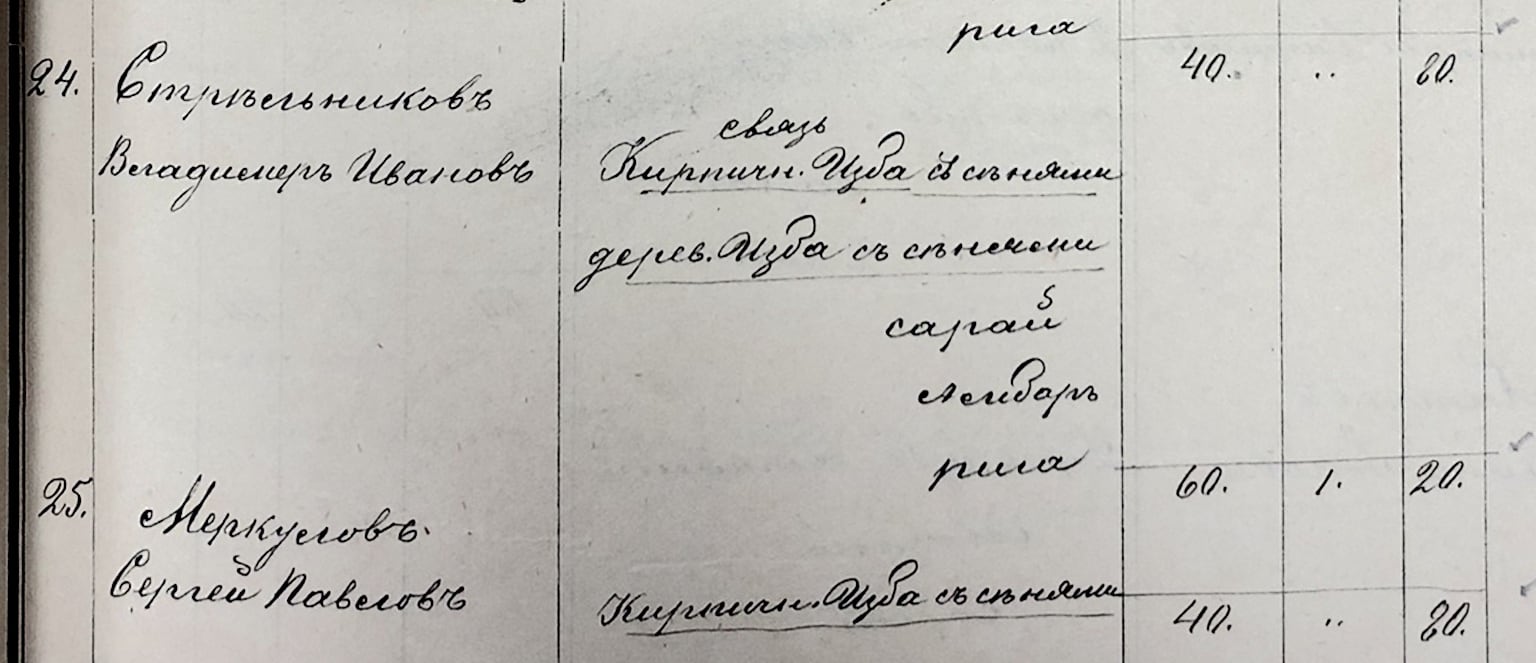 рига
24. Стрѣльниковъ 40. .. 80.
связь
Владимеръ Ивановъ Кирпичн. Изба съ сѣнями
дерев. Изба съ сѣнями
сарай
Амбаръ
рига 60. 1. 20.
25. Меркуловъ.
Сергей Павловъ Кирпичн. Изба съ сѣнями 40. .. 80.